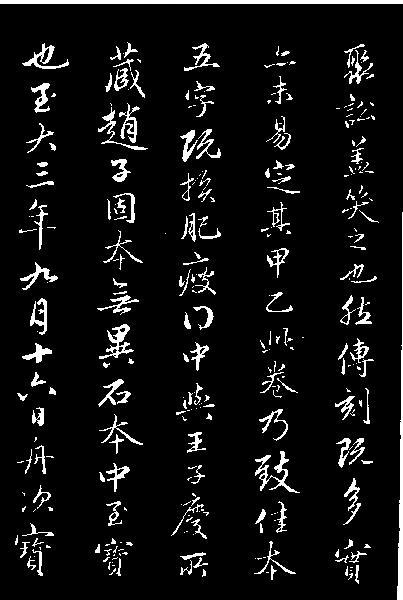 聚訟盖笑之也然傳刻既多實
亦未易定其甲乙此卷乃致佳本
五字既損肥瘦得中與王子慶所
藏趙子固本無異石本中至寶
也至大三年九月十六日舟次寶